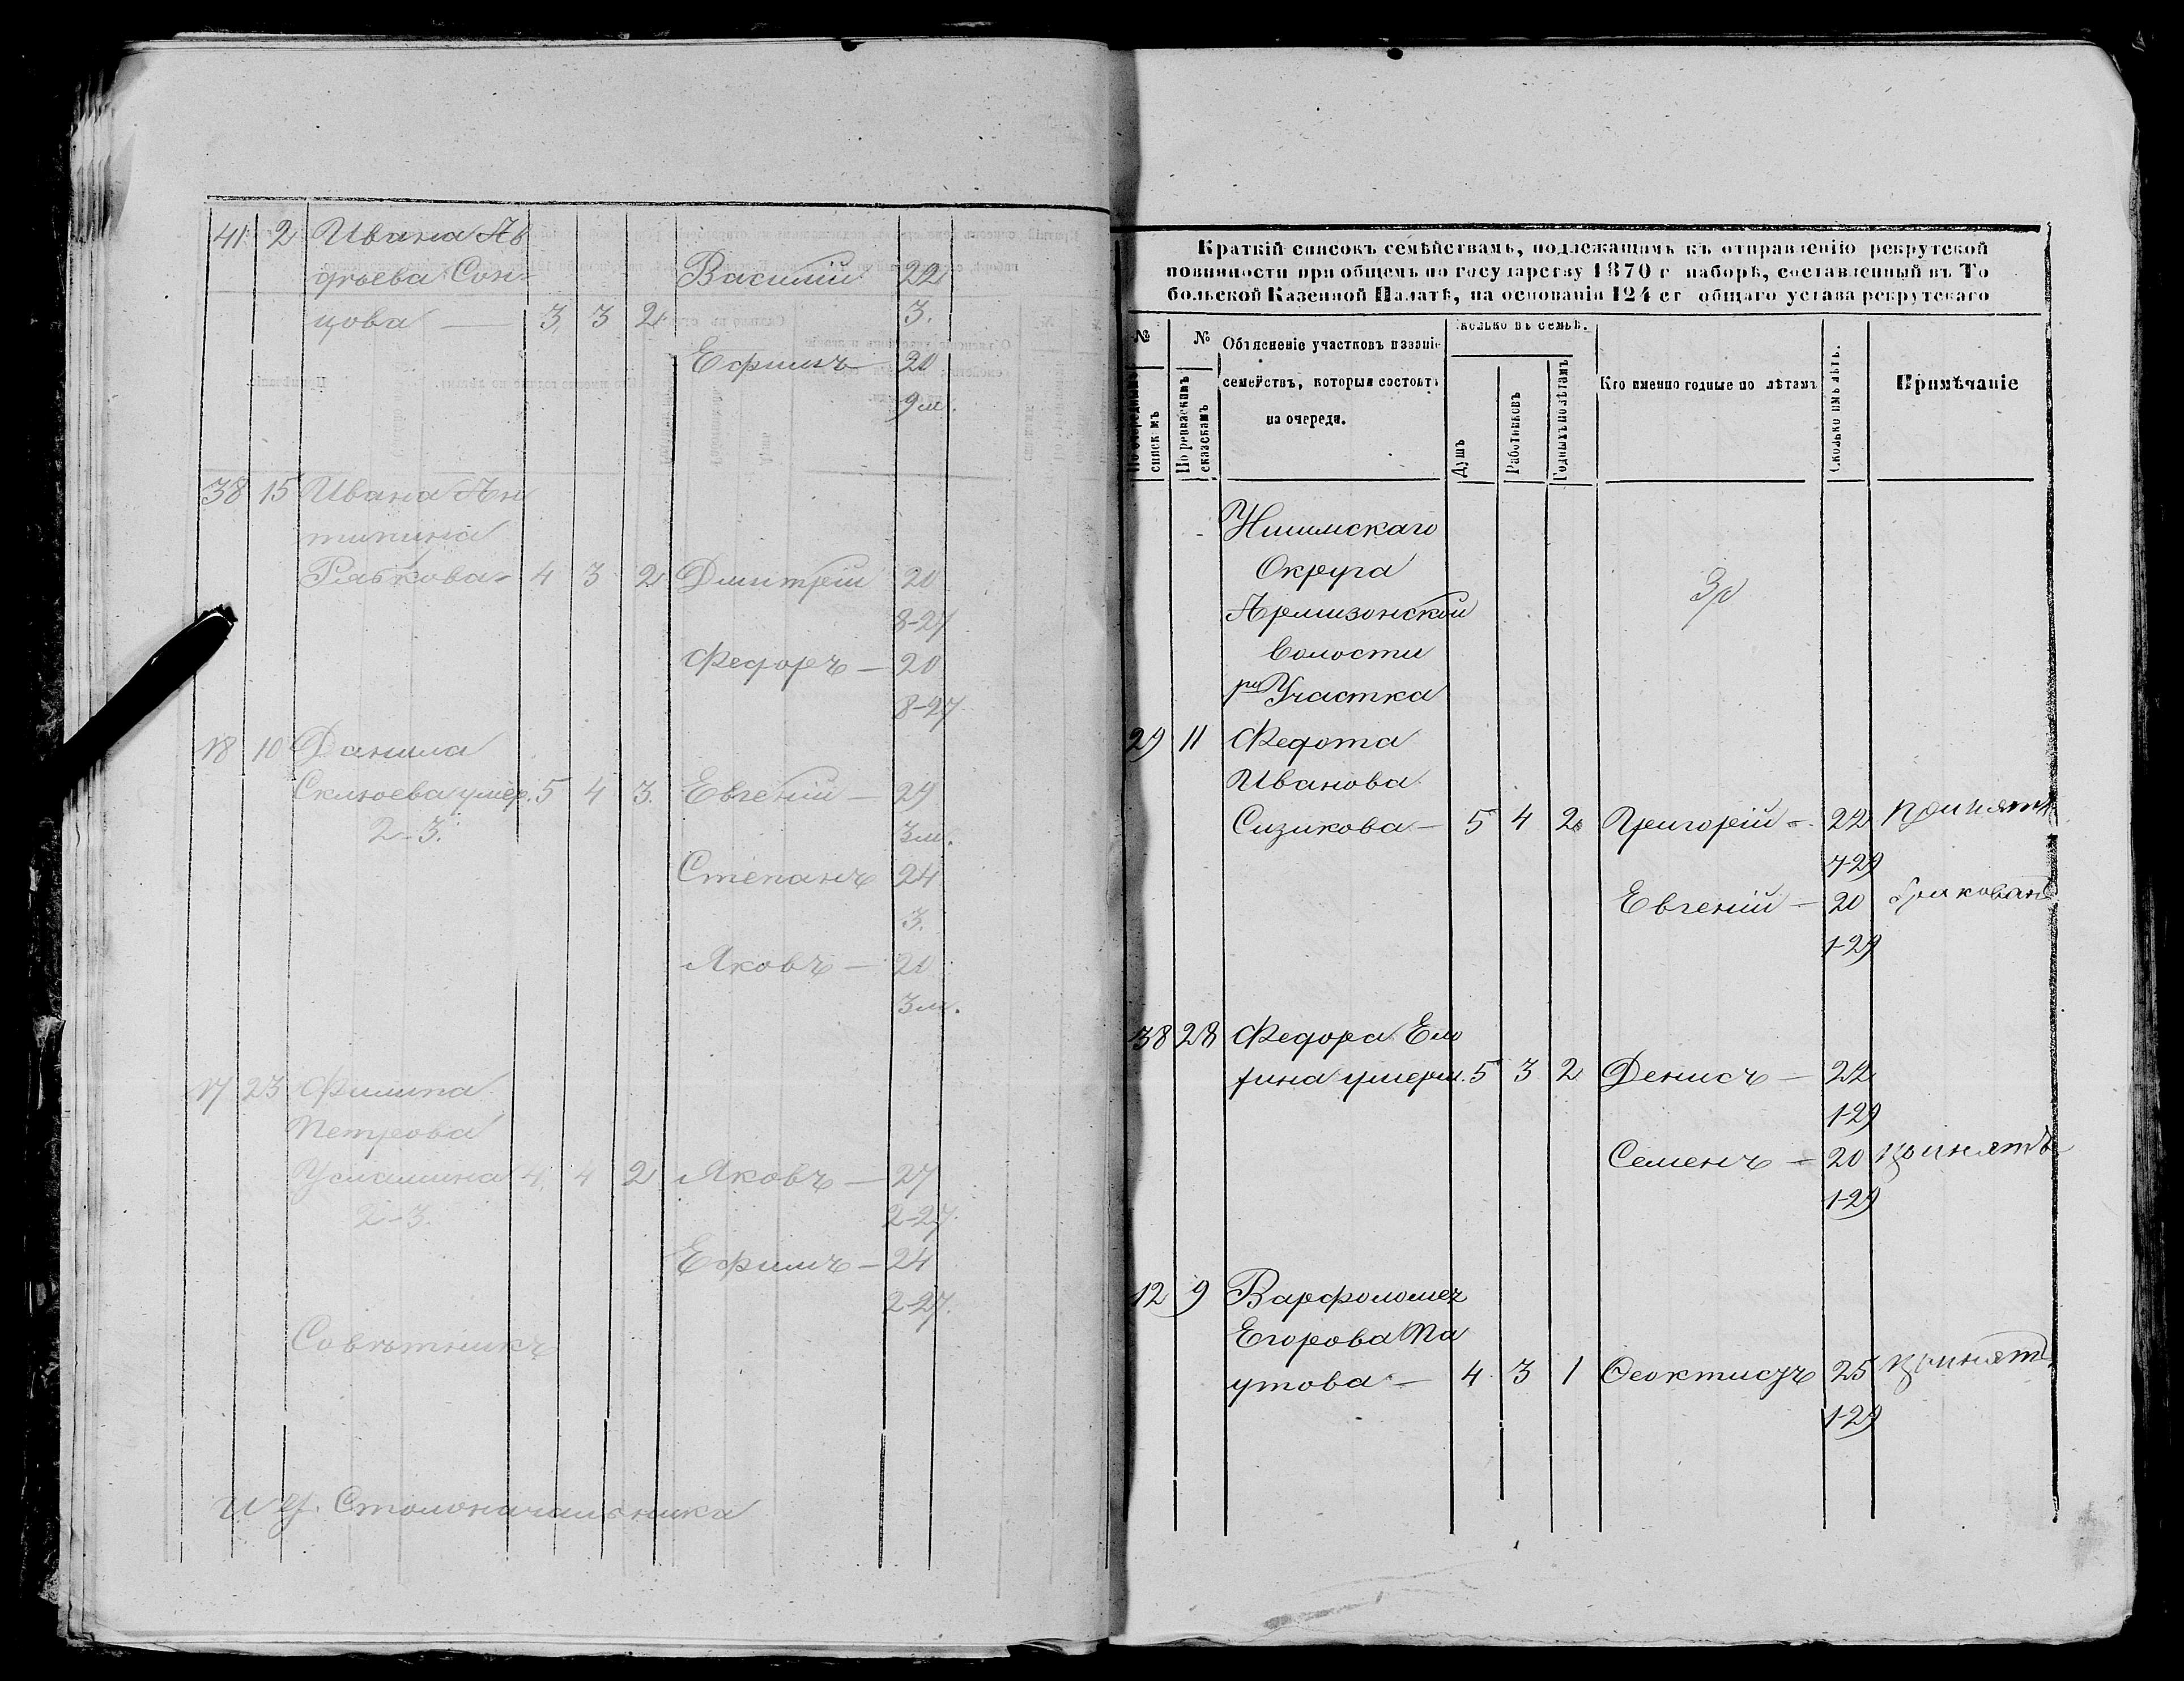 41 2 Ивана Ав
дѣева Сон- Василій 22
цова — 3, 3 2 3.
Ефимъ — 20
9 м.
38 15 Ивана Ан
типина
Рябкова - 4 3 2 Дмитрій 20
8-27
Федоръ — 20
8-27
18 10 Данила
Склюева умер. 5 4 3. Евгеній — 29
2-3. 3 м.
Степанъ 24
3.
Яковъ — 20
3 м.
17 23 Филипа
Петрова
4. 4 2 Яковъ — 27
2-3. 2-27.
Ефимъ — 24
2-27.
Совѣтникъ
И. д. Столоначальника
Краткій списокъ семѣйствамъ, подлежащимъ къ отправленію рекрутской
повинности при общемъ по государству 1870 г наборѣ, составленный въ То
больской Казенной Палатѣ, на основаніи 124 ст общаго устава рекрутскаго
№ По очереднымъ спискамъ
№ По ревизскимъ сказкамъ
Объясненіе участковъ названіе
семействъ, которыя состоятъ
на очереди.
колько въ семьѣ.
Душъ
Работниковъ
Годныхъ по лѣтамъ
Кто именно годные по лѣтамъ
Сколько имъ лѣтъ.
Примѣчаніе
Ишимскаго
Округа
Армизонской
Волости
Участка
29 11 Федота
Иванова
Сизикова — 5 4 2 Григорій - 22 принятъ
7-29
Евгеній — 20 бракованъ
1-29
38 28 Федора Ело
умерш. 5 3 2 Денисъ — 22
1-29
Семенъ — 20 принятъ
1-29
12 9 Варфоломея
Егорова Па
утова — 4 3 1 Ѳеоктистъ 25 принятъ
1-29